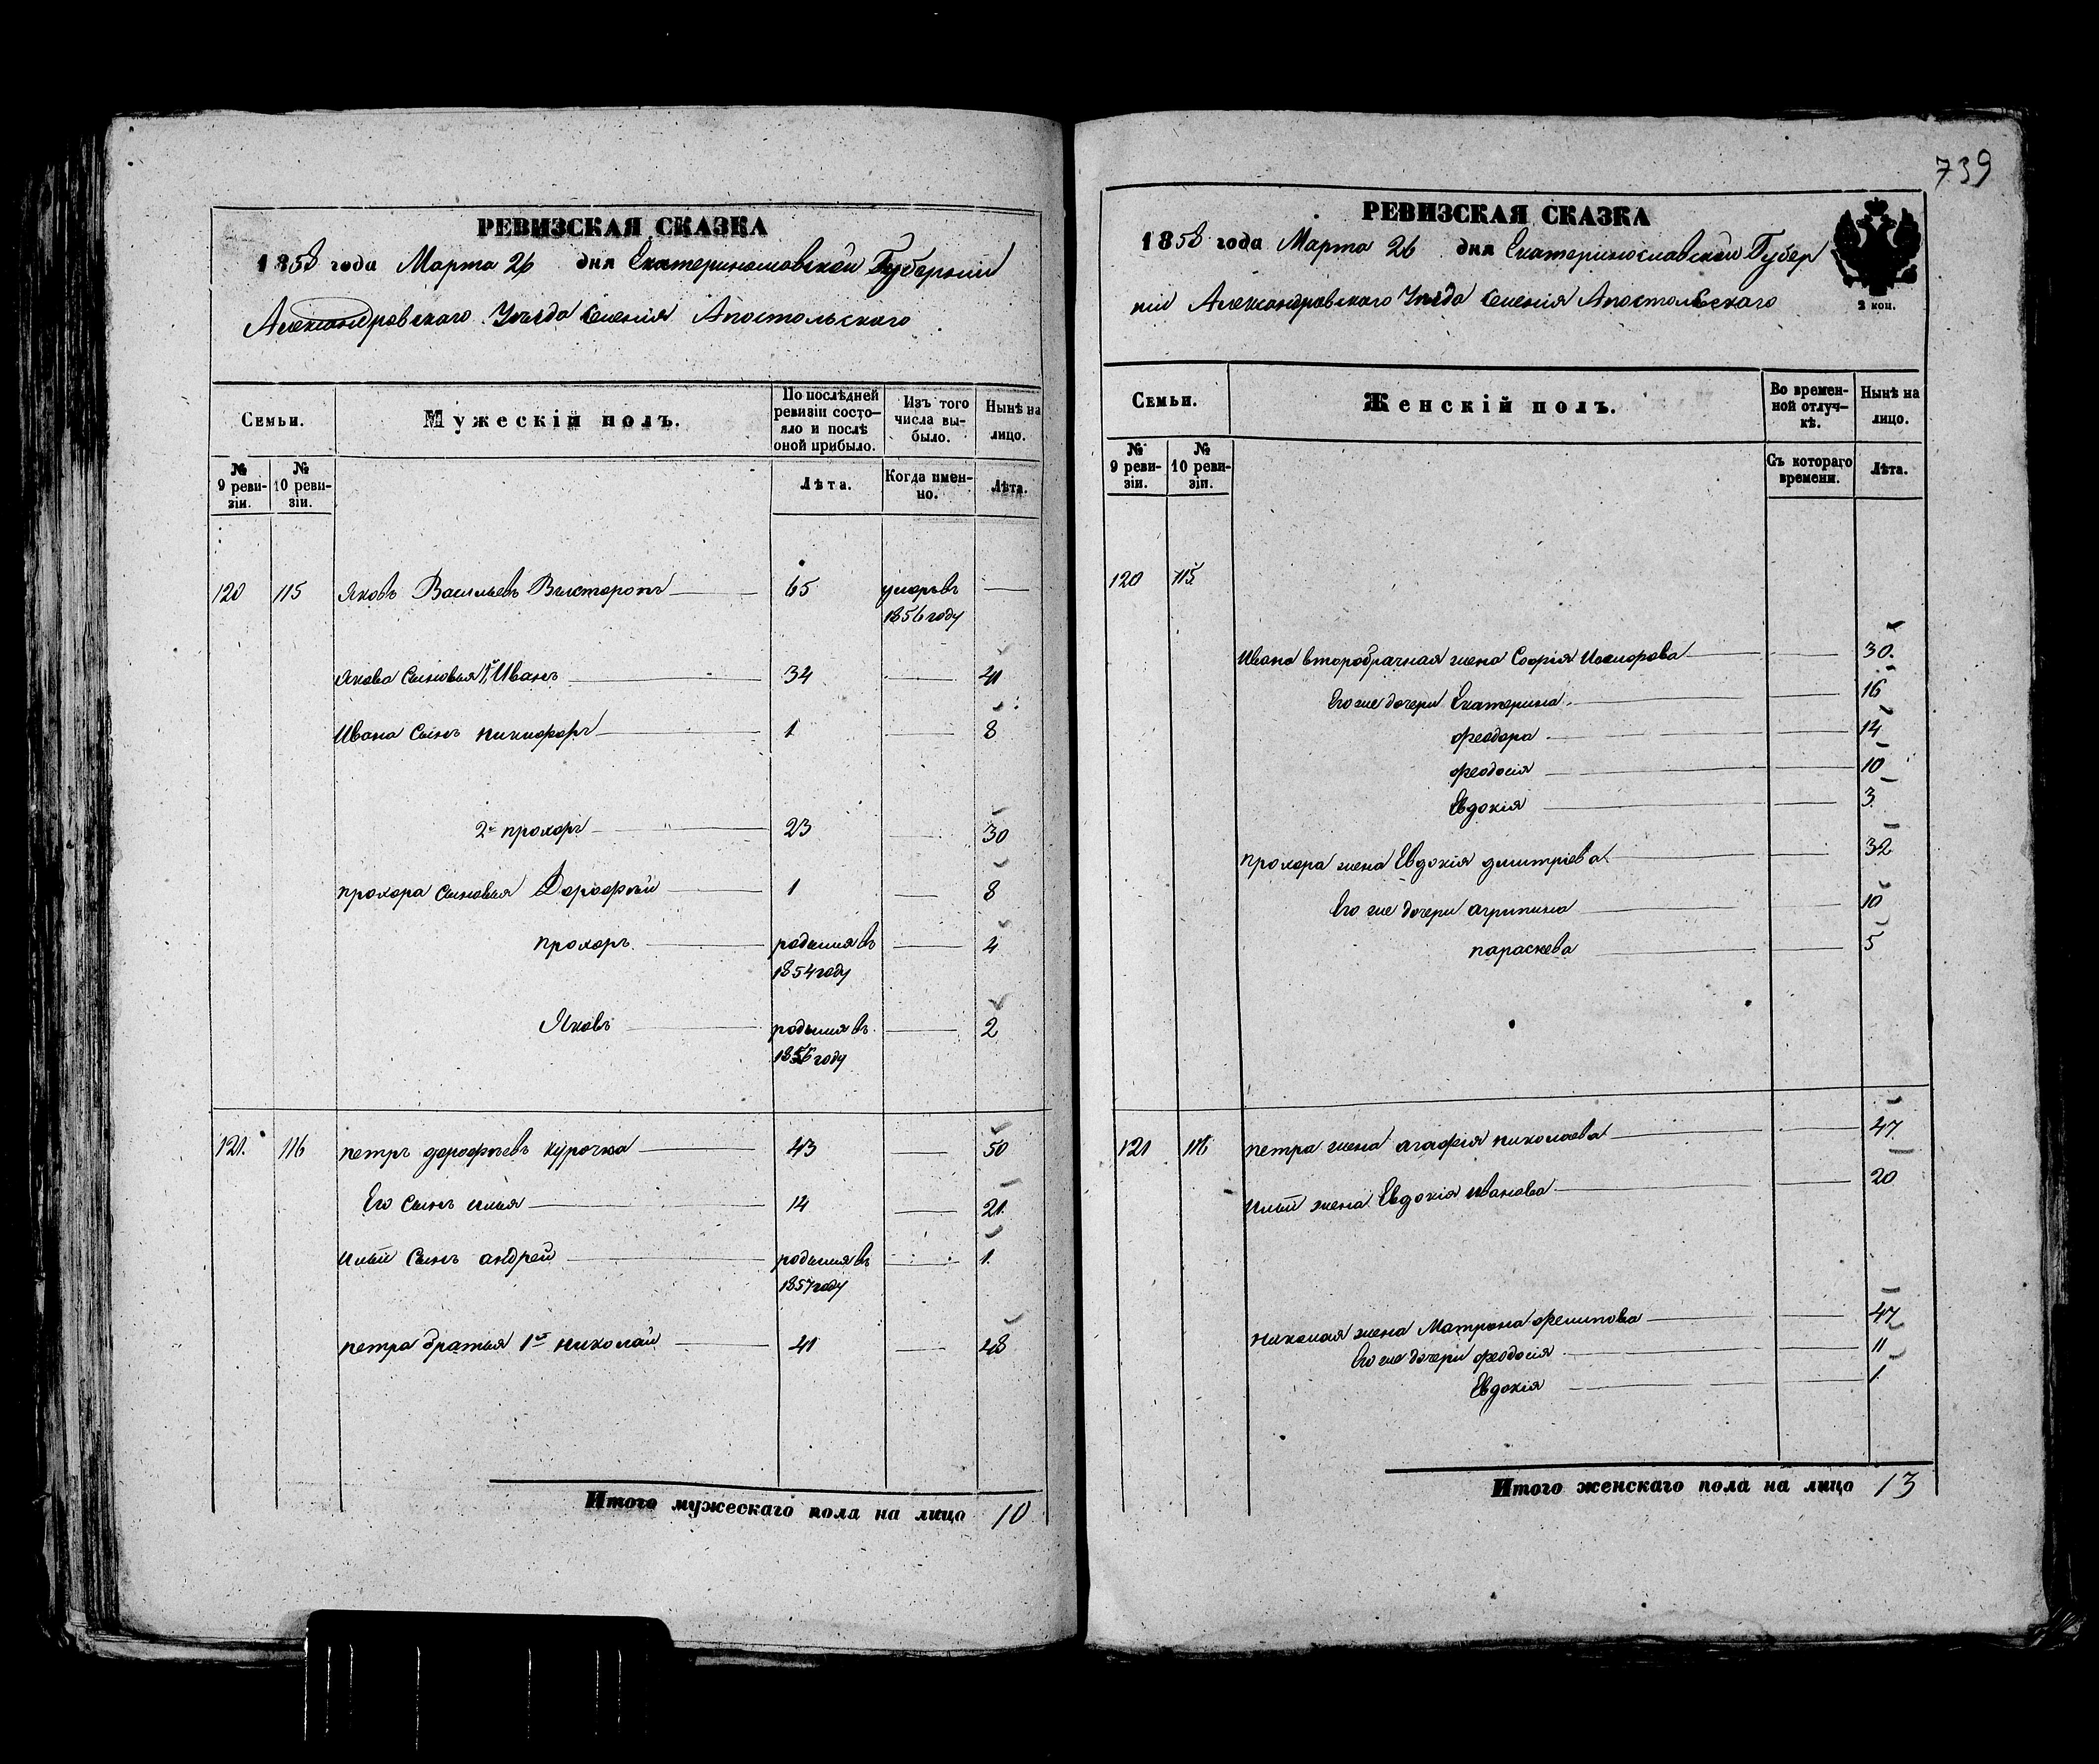 РЕВИЗСКАЯ СКАЗКА
1858 года Марта 26 дня Екатеринославской Губернии
Александровского Уезда Селения Апостольского
Семьи.
Мужескій полъ.
По послѣдней ревизіи состо-
яло и послѣ оной прибыло.
Изъ того числа вы-
было.
Нынѣ на лицо.
№ 9 реви-
зіи.
№ 10 реви-
зіи.
Лѣта.
Когда имен-
но.
Лѣта.
120 115 Яковъ Васильевъ 65 умеръ въ
1856 году
Якова Сыновья 1й Иванъ 34 41
Ивана Сынъ никифоръ 1 8
2й прохоръ 23 30
прохора Сыновья Дорофѣй 1 8
прохоръ родился въ 4
1854 году
Яковъ родился въ 2
1856 году
121. 116 петръ дорофѣевъ курочка 43 50
Его Сынъ илья 14 21.
Ильи Сынъ андрей родился въ 1.
1857 году
петра братья 1й николай 41 48
Итого мужескаго пола на лицо 10
739
РЕВИЗСКАЯ СКАЗКА
1858 года Марта 26 дня Екатеринославской Губер
ніи Александровского Уезда Селения Апостольского
2 коп.
Семьи.
Женскій полъ.
Во времен-
ной отлуч-
кѣ.
Нынѣ на лицо.
№ 9 реви-
зіи.
№ 10 реви-
зіи.
Съ котораго времени.
Лѣта.
120 115
Ивана второбрачная жена Софія 30.
Его же дочери Екатерина 16
феодора 14
феодосія 10
Евдокія 3.
прохора жена Евдокія дмитріева 32
Его же дочери агрипина 10
параскева 5
121 116 петра жена агафія николаева 47.
Ильи жена Евдокія иванова 20
николая жена Матрона филипова 47
Его же дочери феодосія 11
Евдокія 1
Итого женскаго пола на лицо 13